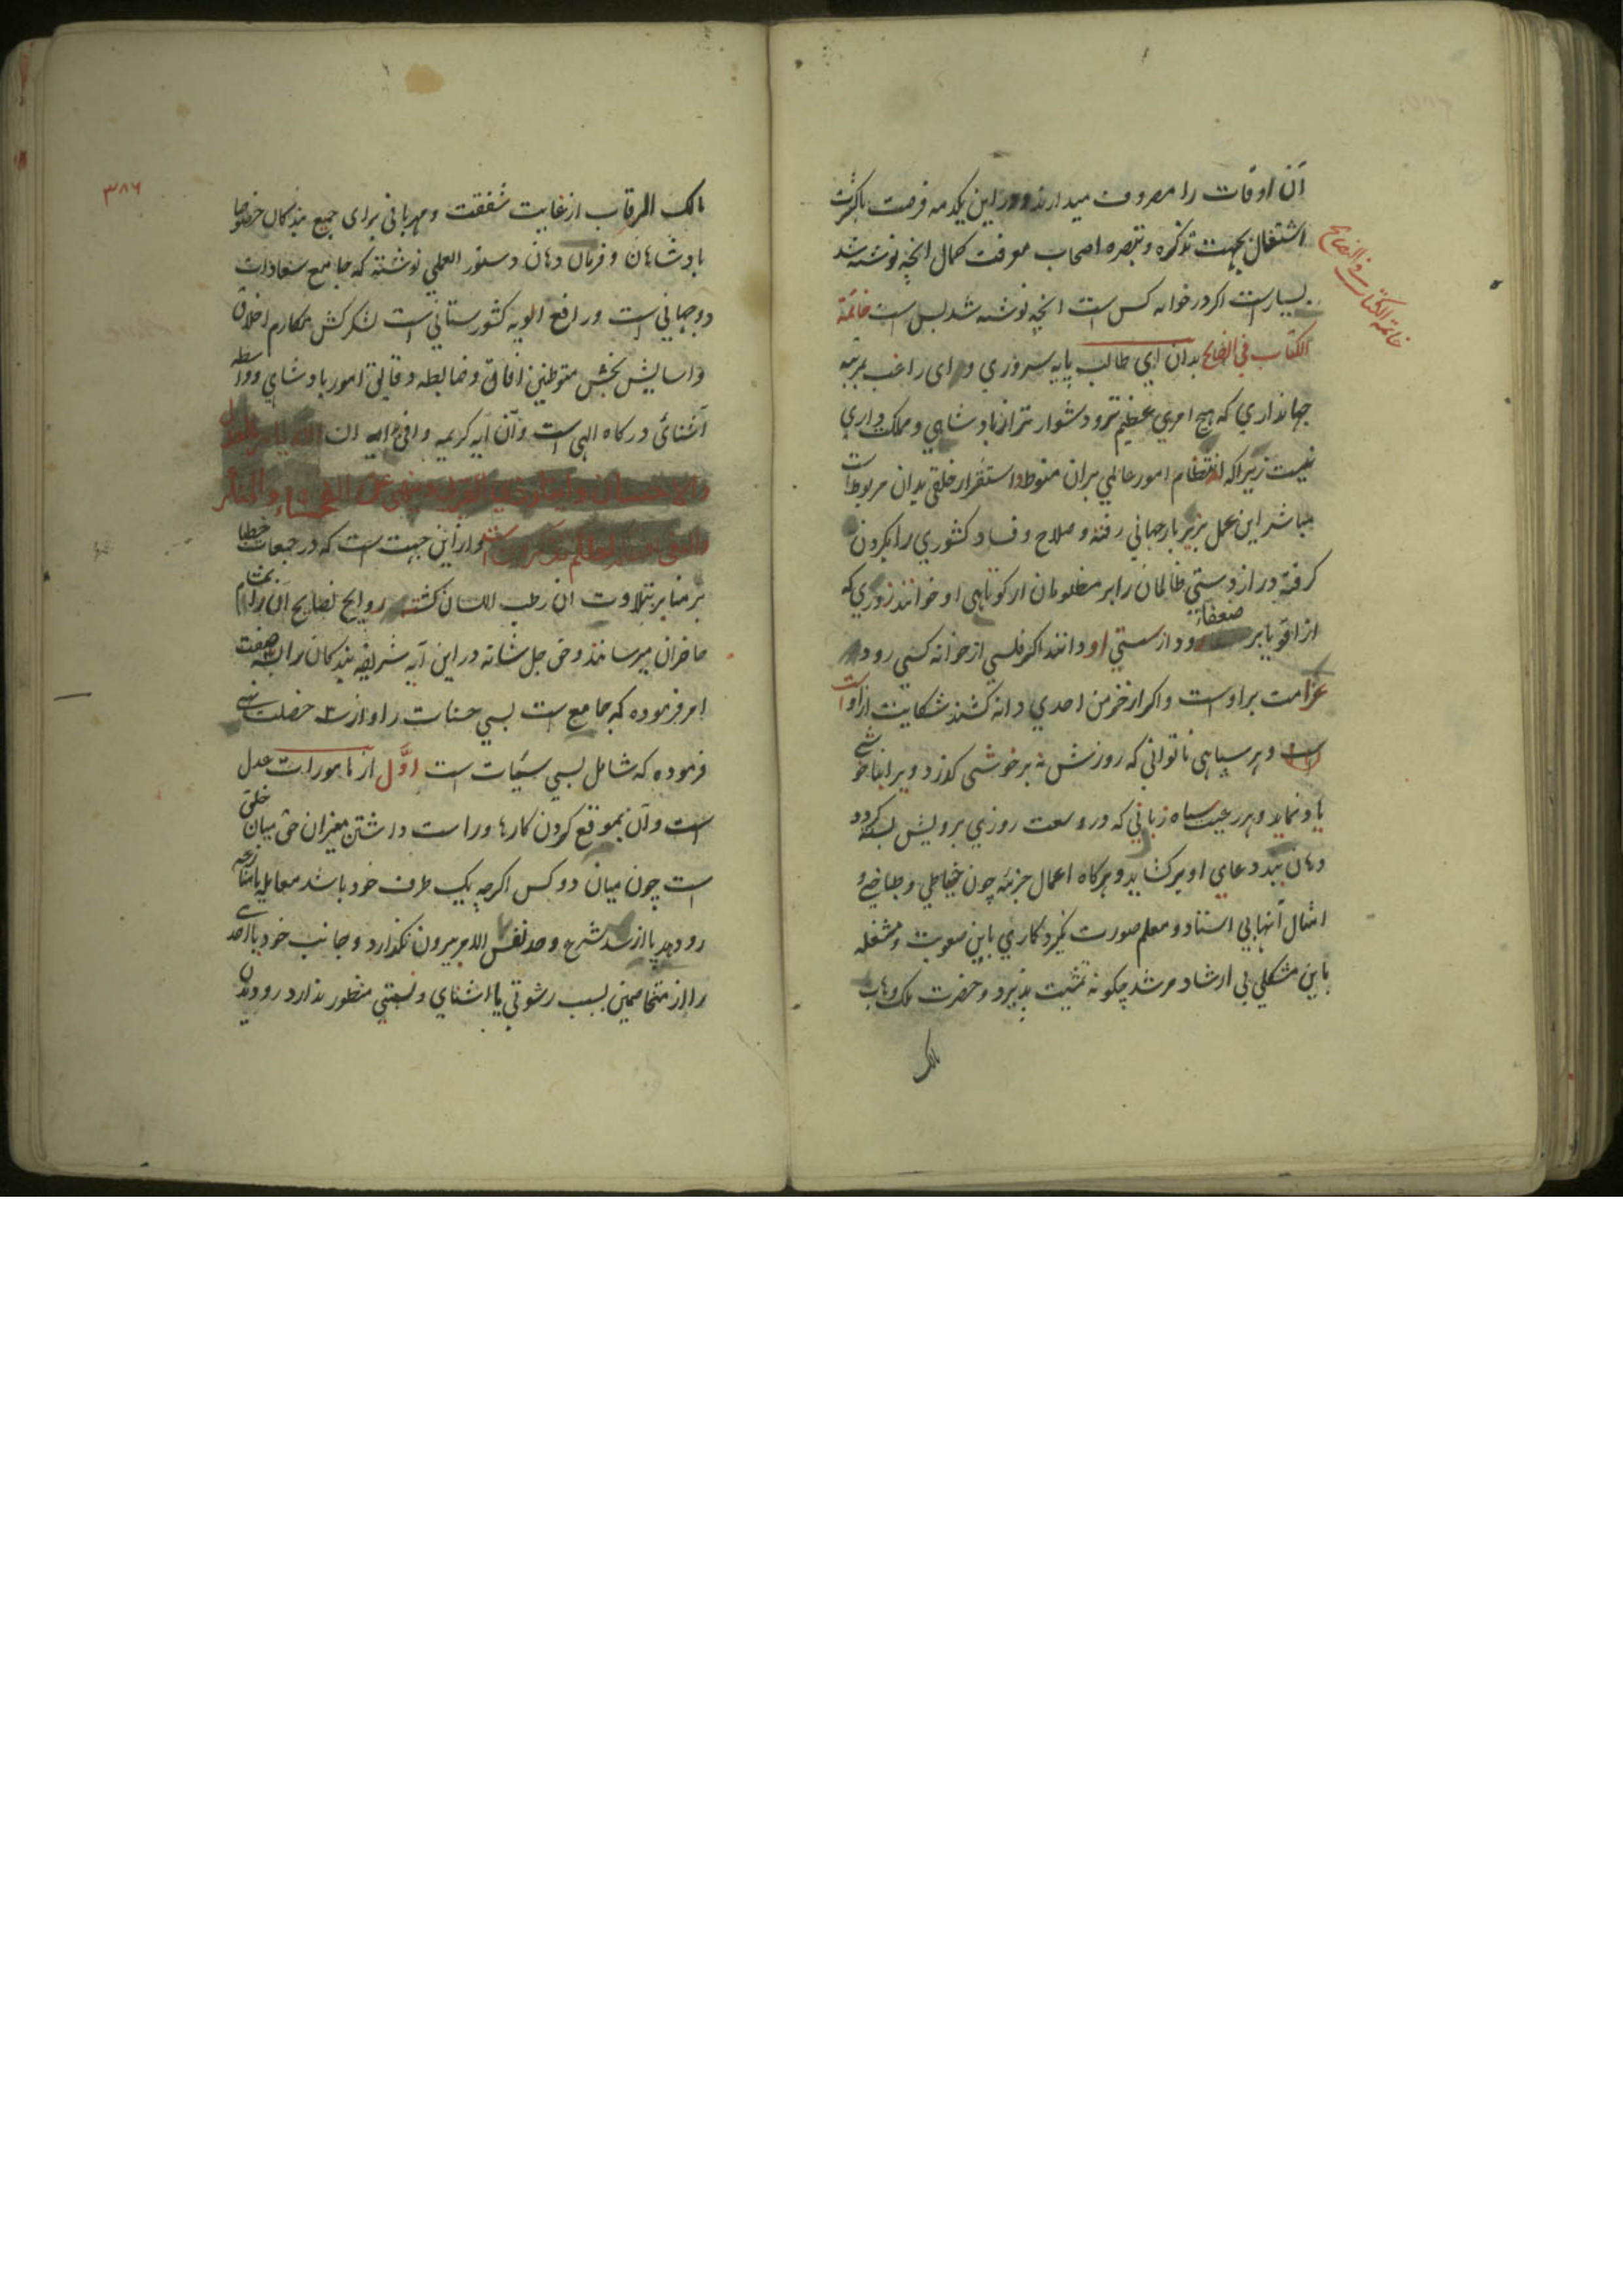 آن اوقات را مصروف میدارند و در این یکدمه فرصت باکثرت
اشتغال بجهت تذکره و تبصره اصحاب معرفت کمال انچه نوشته شد
بسیار است اکر در خوانه کس است انچه نوشته شد بس است خاتمة
الکتاب فی النصایح بدان ای طالب پایه سروری و ای راغب بمرتبه
جهانداری که هیچ امری عظیم تر و دشوار تر از پادشاهی و ملک داری
نیست زیرا که انتظام امور عالمی بران منوط و استقرار خلقی بدان مربوط است
مباشر این عمل بزیر بار جهانی رفته و صلاح و فساد کشوری را بکردن
کرفته دراز دستی ظالمان را بر مظلومان از کوتاهی او خوانند زوری که
از اقویا بر ضعفاء رود از سستی او دانند اکر فلسی از خوانه کسی رود
غرامت بر اوست و اکر از خرمن احدی دانه کشند شکایت از او است
و هر سپاهی ناتوانی که روزش نه بر خوشی کذرد ویرا بناخوشی
یاد نماید و هر رعیت سیاه زبانی که در وسعت روزی برویش بسته کردد
دهان ببد دعای او بر کشاید و هر کاه اعمال جزئیه چون خیاطی و طباخی و
امثال آنها بی استاد و معلم صورت نکیرد کاری باین صعوبت و مشغله
باین مشکلی بی ارشاد مرشد چکونه تمشیت پذیرد و حضرت ملک وهاب
مالک
خاتمة الکتاب و النصایح
۳۸۶
مالک الرقاب از غایت شفقت و مهربانی برای جمیع بندکان خصوصا
پادشاهان و فرمان دهان دستور العملی نوشته که جامع سعادات
دو جهانی است و رافع الویه کشورستانی است لشکرکش مکارم اخلاق
و اسایش بخش متوطنین افاق و ضابطه دقایق امور پادشاهی و واسطه
آشنائی درکاه الهی است و آن آیه کریمه وافی هدایه ان الله یأمر بالعدل
والاحسان و ایتاء ذی القربی و ینهی عن الفحشاء والمنکر
والبغی یعظکم لعلکم تذکرون است و از این جهت است که در جمعات خطبا
بر منابر بتلاوت ان رطب اللسان کشته روایح نصایح ان را بمشام
حاضران میرسانند و حق جل شانه در این آیه شریفه بندکان را بسه صفت
امر فرموده که جامع است بسی حسنات را و از سه خصلت نهی
فرموده که شامل بسی سیّئات است اوّل از مامورات عدل
است و آن بموقع کردن کارها و راست داشتن میزان حق میان خلق
است چون میان دو کس اکرچه یک طرف خود باشد معامله یا منازعه
رو دهد پا از سد شرع و حد نفس الامر بیرون نکذارد و جانب خود یا احدی
را از متخاصمین بسبب رشوتی یا اشنایی و نسبتی منظور ندارد رو دیدن